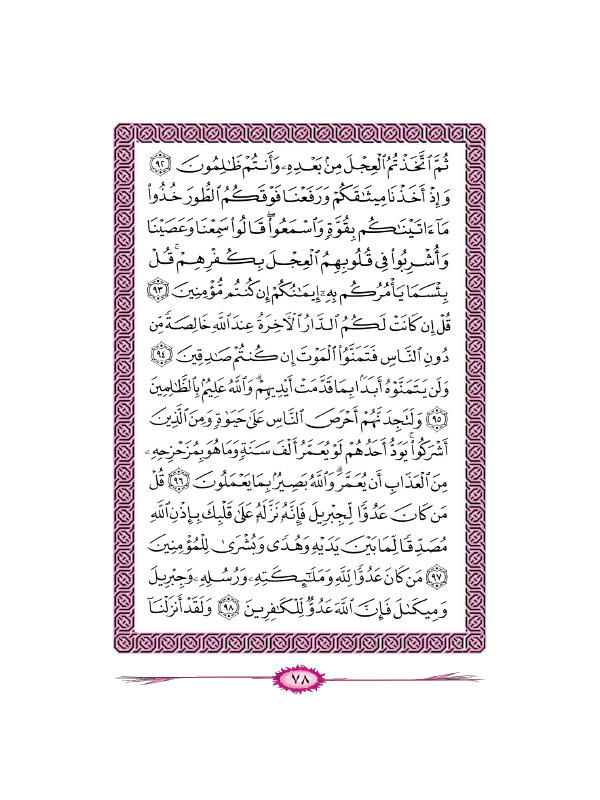 ثُمَّ ٱتَّخَذۡتُمُ ٱلۡعِجۡلَ مِنۢ بَعۡدِهِۦ وَأَنتُمۡ ظَٰلِمُونَ ٩٢
وَإِذۡ أَخَذۡنَا مِيثَٰقَكُمۡ وَرَفَعۡنَا فَوۡقَكُمُ ٱلطُّورَ خُذُواْ
مَآ ءَاتَيۡنَٰكُم بِقُوَّةٖ وَٱسۡمَعُواْۖ قَالُواْ سَمِعۡنَا وَعَصَيۡنَا
وَأُشۡرِبُواْ فِي قُلُوبِهِمُ ٱلۡعِجۡلَ بِكُفۡرِهِمۡۚ قُلۡ
بِئۡسَمَا يَأۡمُرُكُم بِهِۦٓ إِيمَٰنُكُمۡ إِن كُنتُم مُّؤۡمِنِينَ ٩٣
قُلۡ إِن كَانَتۡ لَكُمُ ٱلدَّارُ ٱلۡأٓخِرَةُ عِندَ ٱللَّهِ خَالِصَةٗ مِّن
دُونِ ٱلنَّاسِ فَتَمَنَّوُاْ ٱلۡمَوۡتَ إِن كُنتُمۡ صَٰدِقِينَ ٩٤
وَلَن يَتَمَنَّوۡهُ أَبَدَۢا بِمَا قَدَّمَتۡ أَيۡدِيهِمۡۚ وَٱللَّهُ عَلِيمُۢ بِٱلظَّٰلِمِينَ
٩٥ وَلَتَجِدَنَّهُمۡ أَحۡرَصَ ٱلنَّاسِ عَلَىٰ حَيَوٰةٖ وَمِنَ ٱلَّذِينَ
أَشۡرَكُواْۚ يَوَدُّ أَحَدُهُمۡ لَوۡ يُعَمَّرُ أَلۡفَ سَنَةٖ وَمَا هُوَ بِمُزَحۡزِحِهِۦ
مِنَ ٱلۡعَذَابِ أَن يُعَمَّرَۗ وَٱللَّهُ بَصِيرُۢ بِمَا يَعۡمَلُونَ ٩٦ قُلۡ
مَن كَانَ عَدُوّٗا لِّجِبۡرِيلَ فَإِنَّهُۥ نَزَّلَهُۥ عَلَىٰ قَلۡبِكَ بِإِذۡنِ ٱللَّهِ
مُصَدِّقٗا لِّمَا بَيۡنَ يَدَيۡهِ وَهُدٗى وَبُشۡرَىٰ لِلۡمُؤۡمِنِينَ
٩٧ مَن كَانَ عَدُوّٗا لِّلَّهِ وَمَلَٰٓئِكَتِهِۦ وَرُسُلِهِۦ وَجِبۡرِيلَ
وَمِيكَىٰلَ فَإِنَّ ٱللَّهَ عَدُوّٞ لِّلۡكَٰفِرِينَ ٩٨ وَلَقَدۡ أَنزَلۡنَآ
٧٨